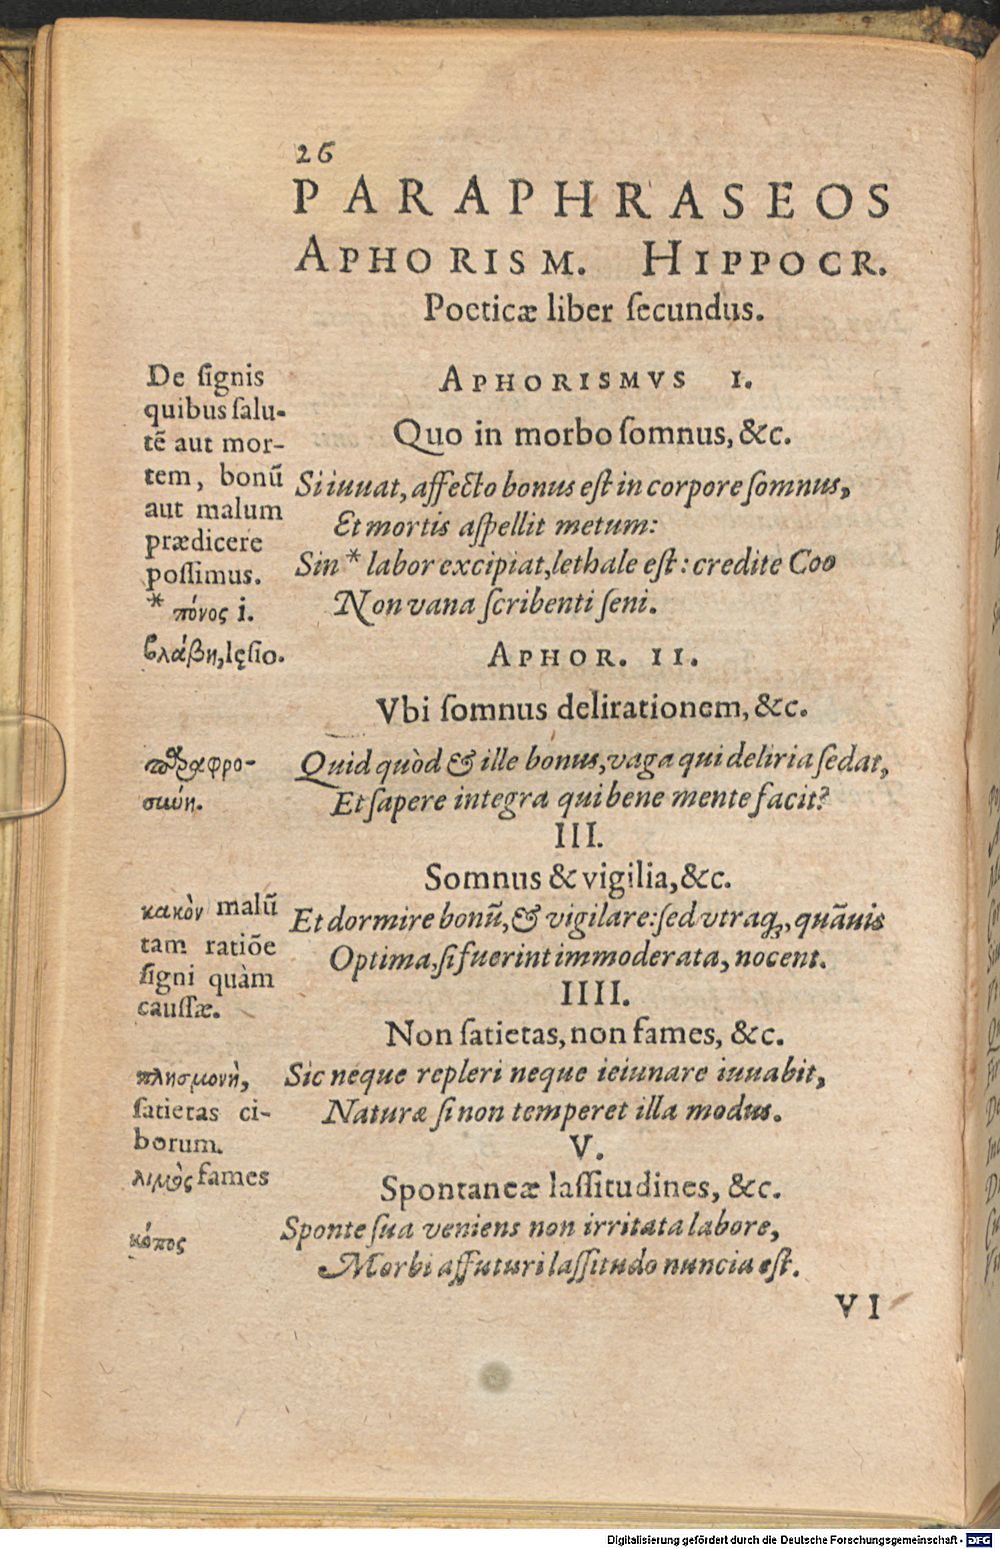 26
PARAPHRASEOS
APHORISM. HIPPOCR.
Poeticæ liber ſecundus.
De ſignis
quibus ſalu-
tē aut mor-
tem, bonū
aut malum
prædicere
poſſimus.
* πόνος i.
βλάβη, lęſio.
APHORISMVS I.
Quo in morbo ſomnus, &c.
Si iuuat, affecto bonus eſt in corpore ſomnus,
Et mortis aſpellit metum:
Sin * labor excipiat, lethale eſt: credite Coo
Non vana ſcribenti ſeni.
APHOR. II.
Vbi ſomnus delirationem, &c.
παραφρο-
σιύη.
Quid quòd & ille bonus, vaga qui deliria ſedat,
Et ſapere integra qui bene mente facit?
III.
Somnus & vigilia, &c.
κακὸν malū
tam ratiōe
ſigni quàm
cauſſæ.
Et dormire bonū, & vigilare: ſed vtraq;, quāuis
Optima, ſi fuerint immoderata, nocent.
IIII.
Non ſatietas, non fames, &c.
πλησμονὴ,
ſatietas ci-
borum.
λιμὸς fames
Sic neque repleri neque ieiunare iuuabit,
Naturæ ſi non temperet illa modus.
V.
Spontaneæ laſſitudines, &c.
κόπος
Sponte ſua veniens non irritata labore,
Morbi affuturi laſſitudo nuncia eſt.
VI
Digitalisierung gefördert durch die Deutsche Forschungsgemeinschaft - DFG